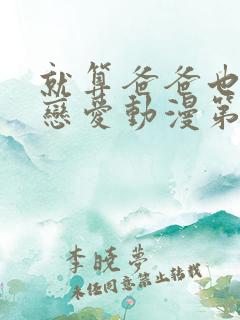 就算爸爸也
戀愛動漫第
李曉夢
未经同意禁止转载